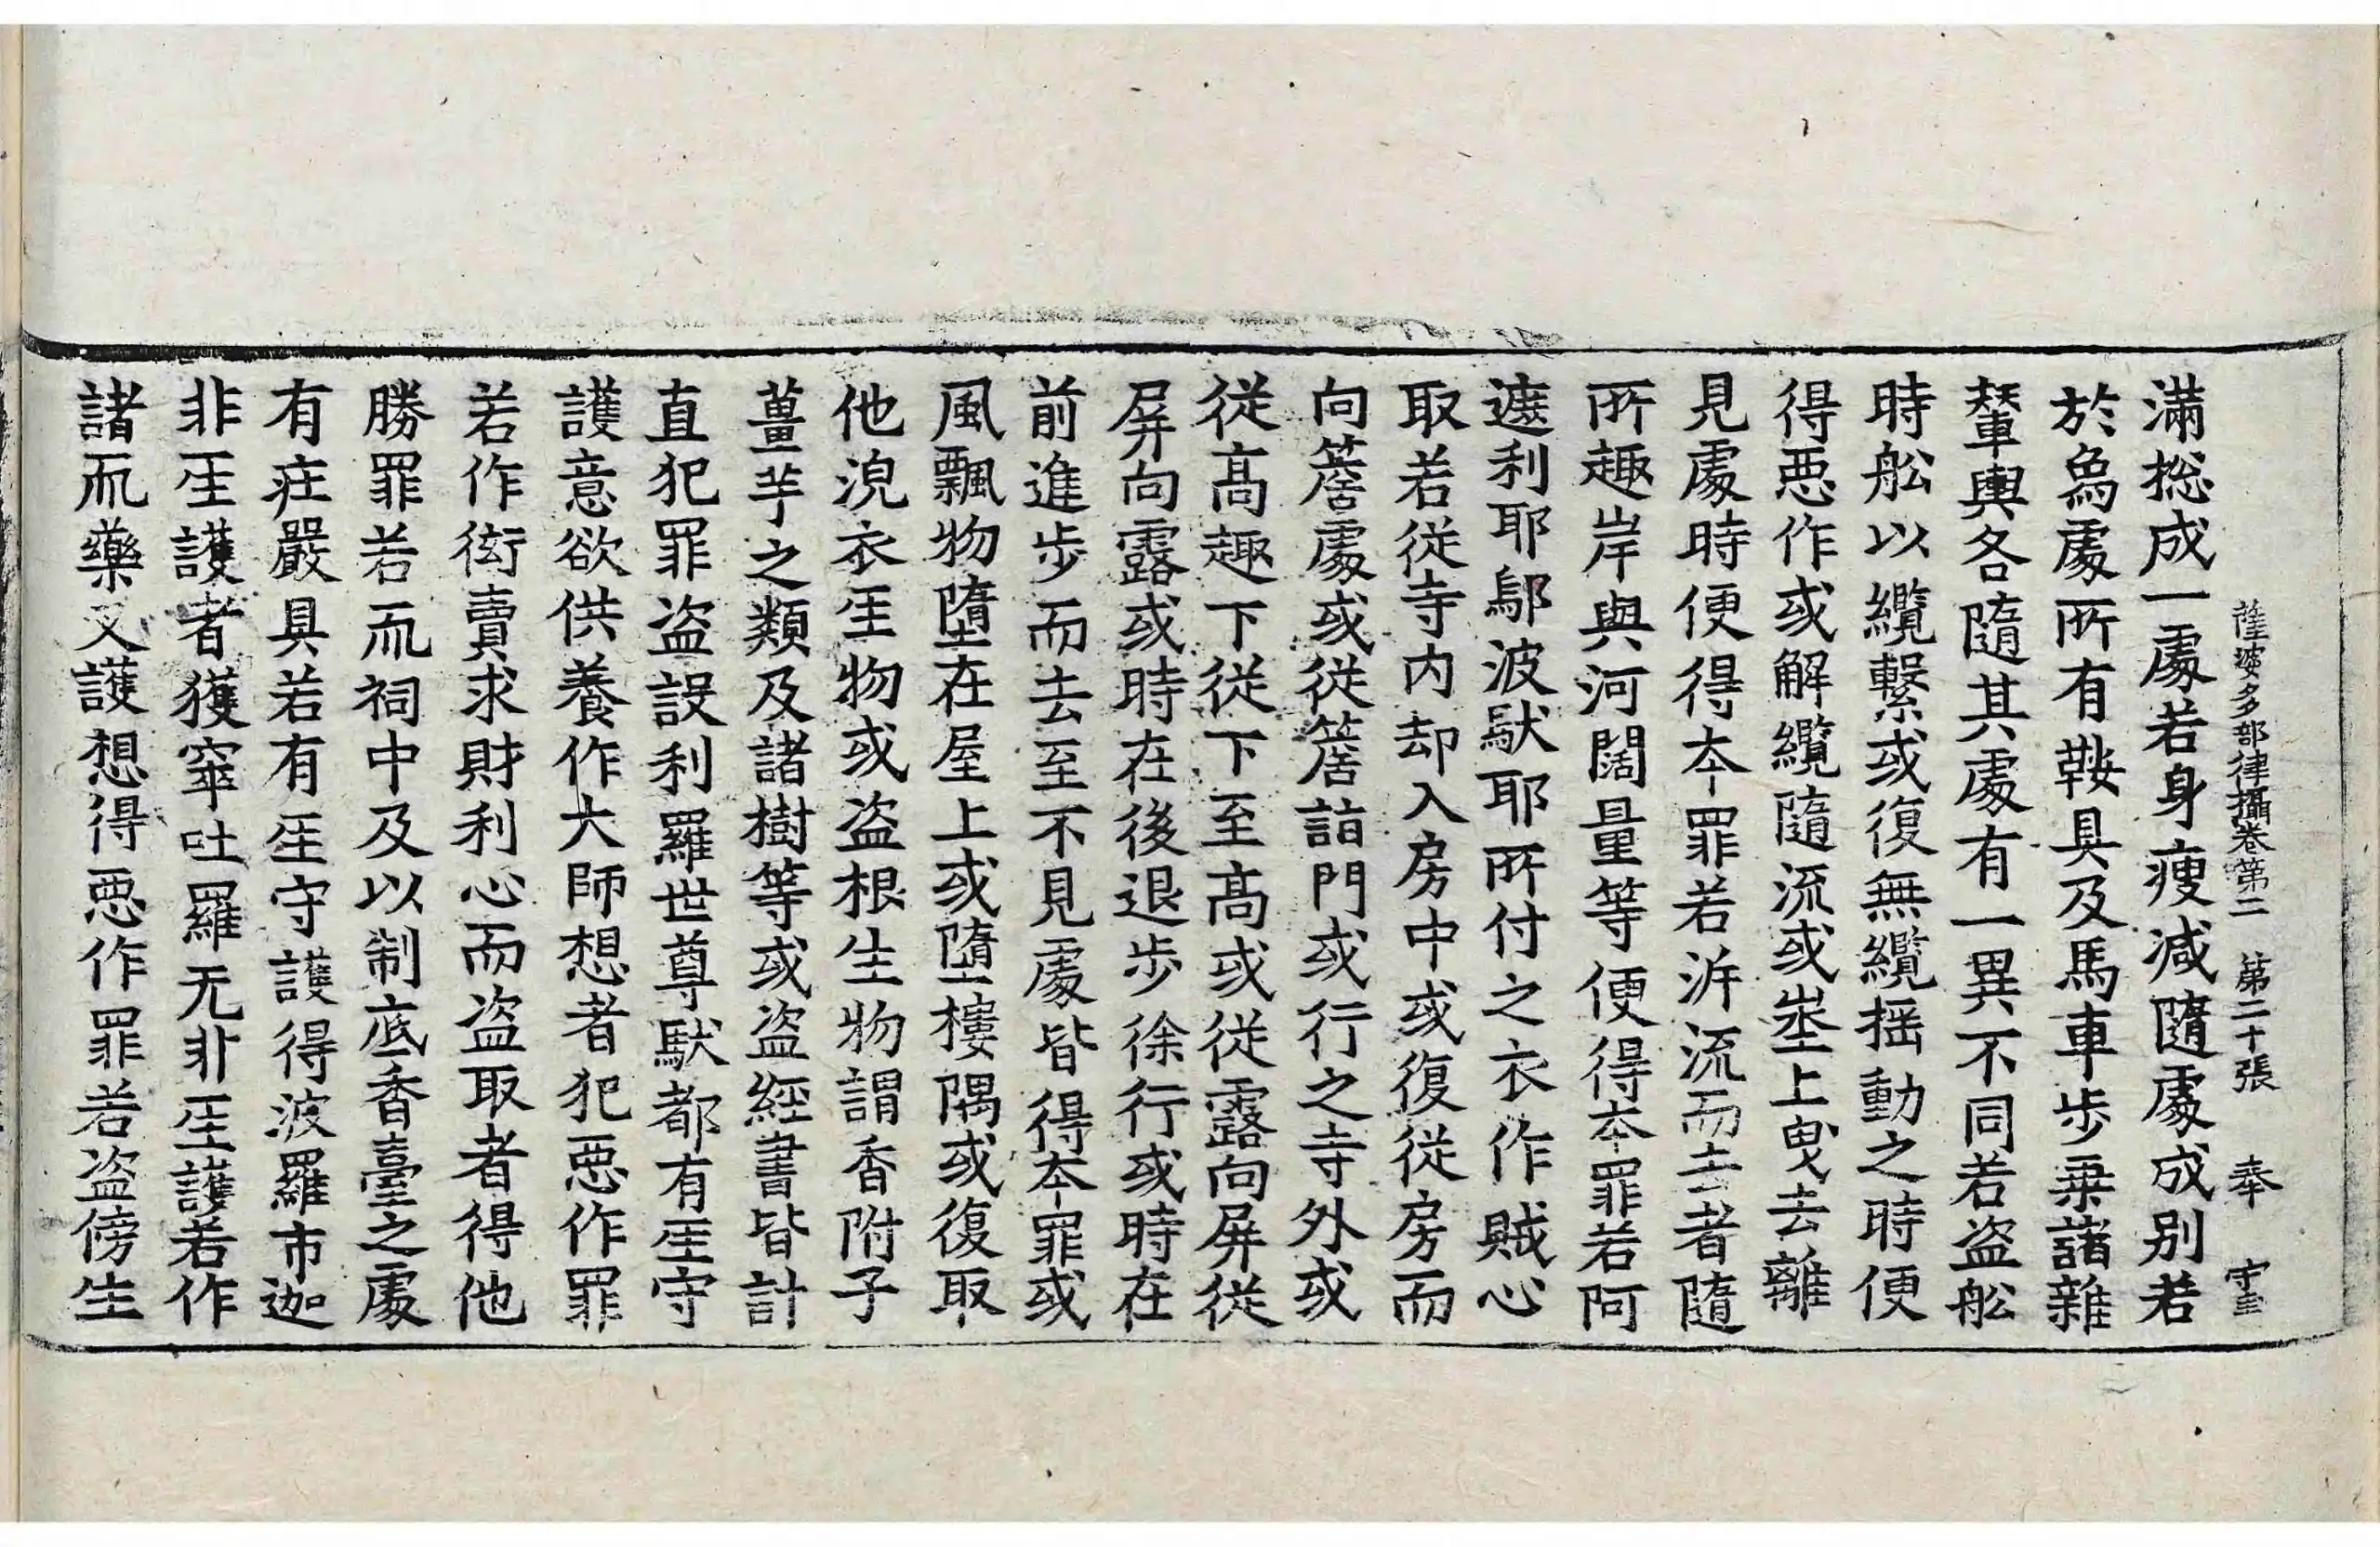 薩婆多部律攝卷第二 第二十張 奉 守三
滿惣成一處若身瘦减隨處成別若
於爲處所有鞍具及馬車步乗諸雜
輦輿各隨其處有一異不同若盗舩
時舩以纜繫或復無纜揺動之時便
得惡作或解纜隨流或埊上曳去離
見處時便得夲罪若泝流而去者隨
所趣岸與河闊量等便得夲罪若阿
遮利耶鄔波馱耶所付之衣作賊心
取若從寺内却入房中或復從房而
向簷處或從簷詣門或行之寺外或
從髙趣下從下至髙或從露向屏從
屏向露或時在後退步徐行或時在
前進步而去至不見處皆得夲罪或
風飄物墮在屋上或墮樓隅或復取
他浼衣𤯔物或盗根生物謂香附子
薑芋之類及諸樹等或盗經書皆計
直犯罪盗設利羅世尊馱都有𤯔守
護意欲供養作大師想者犯惡作罪
若作衒賣求財利心而盗取者得他
勝罪若而祠中及以制底香臺之處
有庄嚴具若有𤯔守護得波羅市迦
非𤯔護者獲窣吐羅无非𤯔護若作
諸而藥叉護想得惡作罪若盗傍生